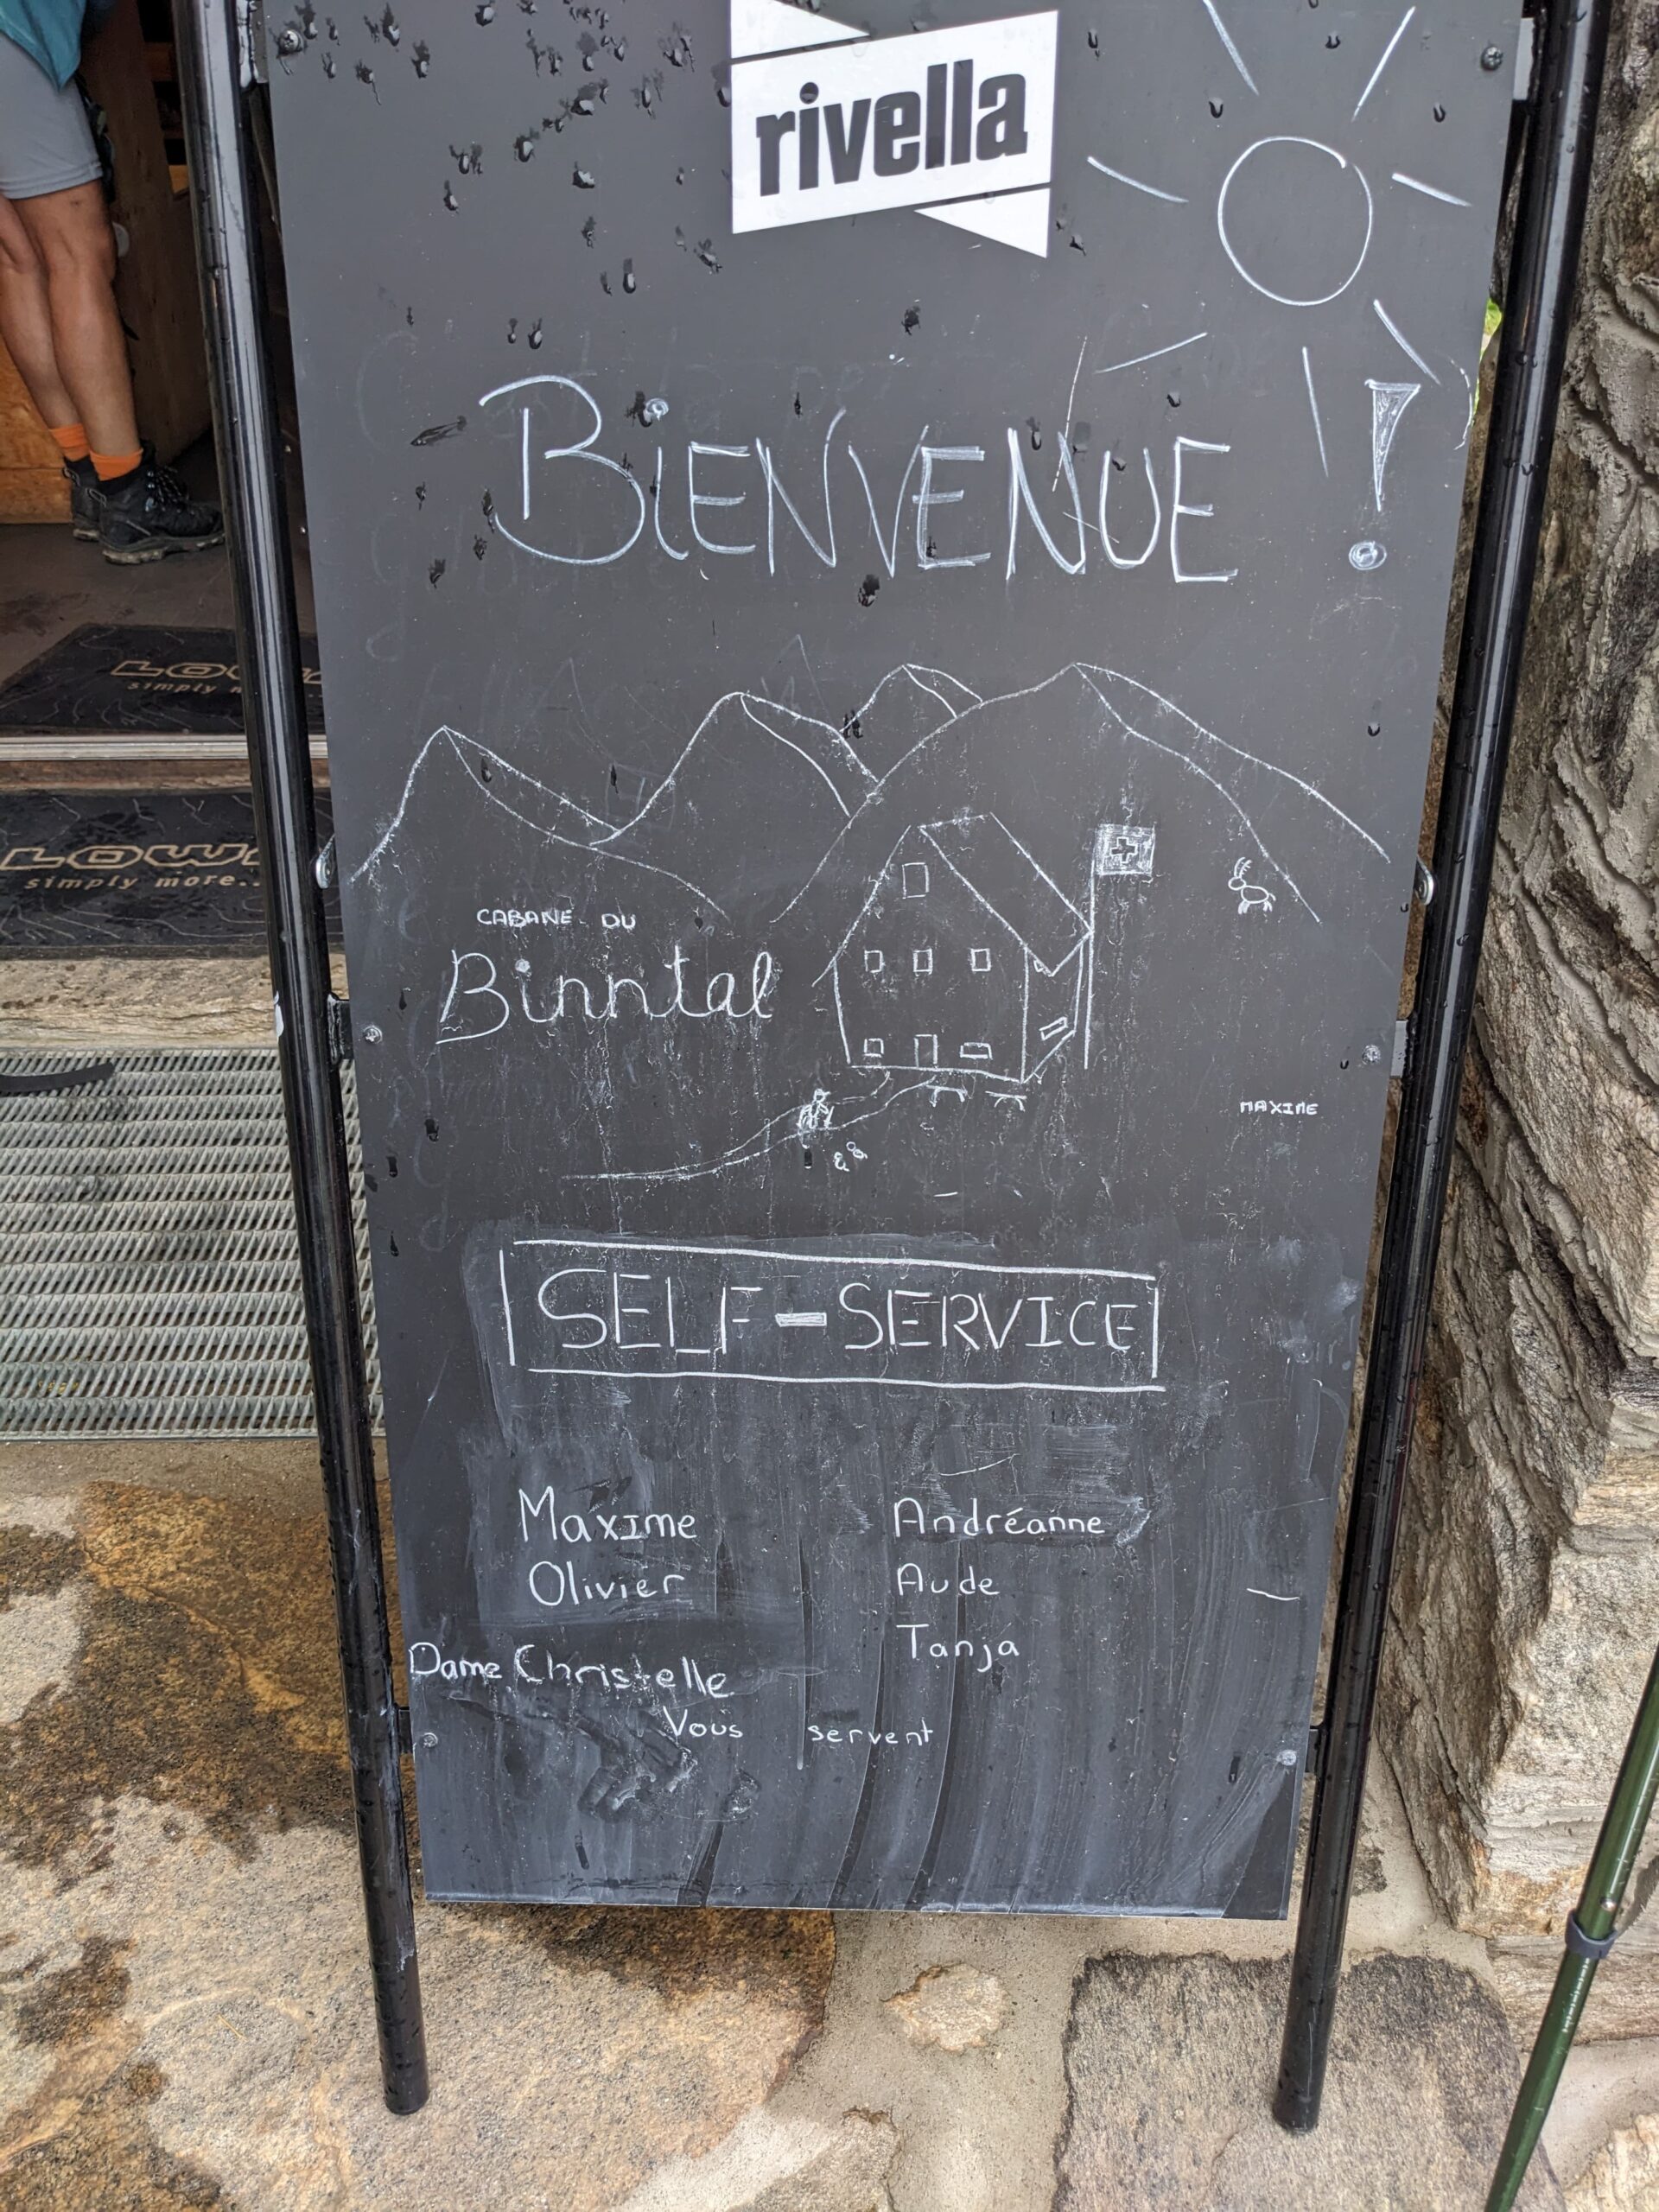 rivella
BIENVENUE !
LOWA
simply more...
CABANE DU
Binntal
MAXIME
SELF-SERVICE
Maxime
Olivier
Dame Christelle
Andréanne
Aude
Tanja
Vous servent